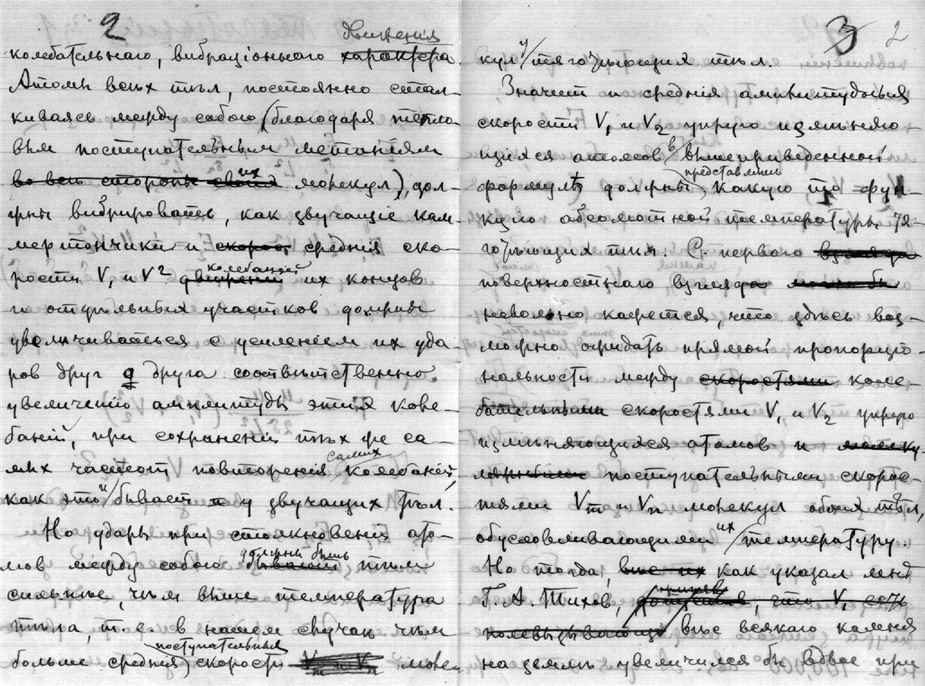 2
движения
колебательнаго, вибраціоннаго характера.
Атомы всѣх тѣл, постоянно стал-
киваясь между собою (благодаря тепло-
вым поступательным метаніям
во всѣ стороны своих их молекул), дол-
жны вибрировать, как звучащіе кам-
мертончики и скорос средние ско-
рости V₁ и V² движений колебаній их концов
и отдѣльных участков должны
увеличиваться с усиленіем их уда-
ров друг д друга соотвѣтственно
увеличенію амплитуды этих коле-
баній, при сохраненіи тѣх же са-
мых частот повторенія самих колебаній,
как это и бывает у звучащих тѣл.
Но удары при столкновеніи ато-
мов между собою бывают должны быть тѣм
сильнѣе, чѣм выше температура
тѣла, т. е. в нашем случаѣ чѣм
больше средния поступательныя скорости Vm и Vn моле-
3 2
кул у тяготѣющих тѣл.
Значит и средния амплитудныя
скорости V₁ и V₂ упруго измѣняю-
щихся атомов в вышеприведенной
формулѣ должны представлять какую то фун-
кцію абсолютной температуры тя-
готѣющих тѣл. С первого взгляда
поверхностнаго взгляда
невольно кажется, что здѣсь воз-
можно ожидать прямой пропорціо-
нальности между скоростями коле-
бательными скоростями V₁ и V₂ упруго
измѣняющихся атомов и молеку-
лярными поступательными скорос-
тями Vm и Vn молекул обоих тѣл,
обусловливающими их температуру.
Но тогда, как указал мнѣ
Г. А. Тихов, допустив, что V₁ есть
вѣс всякаго камня
на землѣ увеличился бы вдвое при